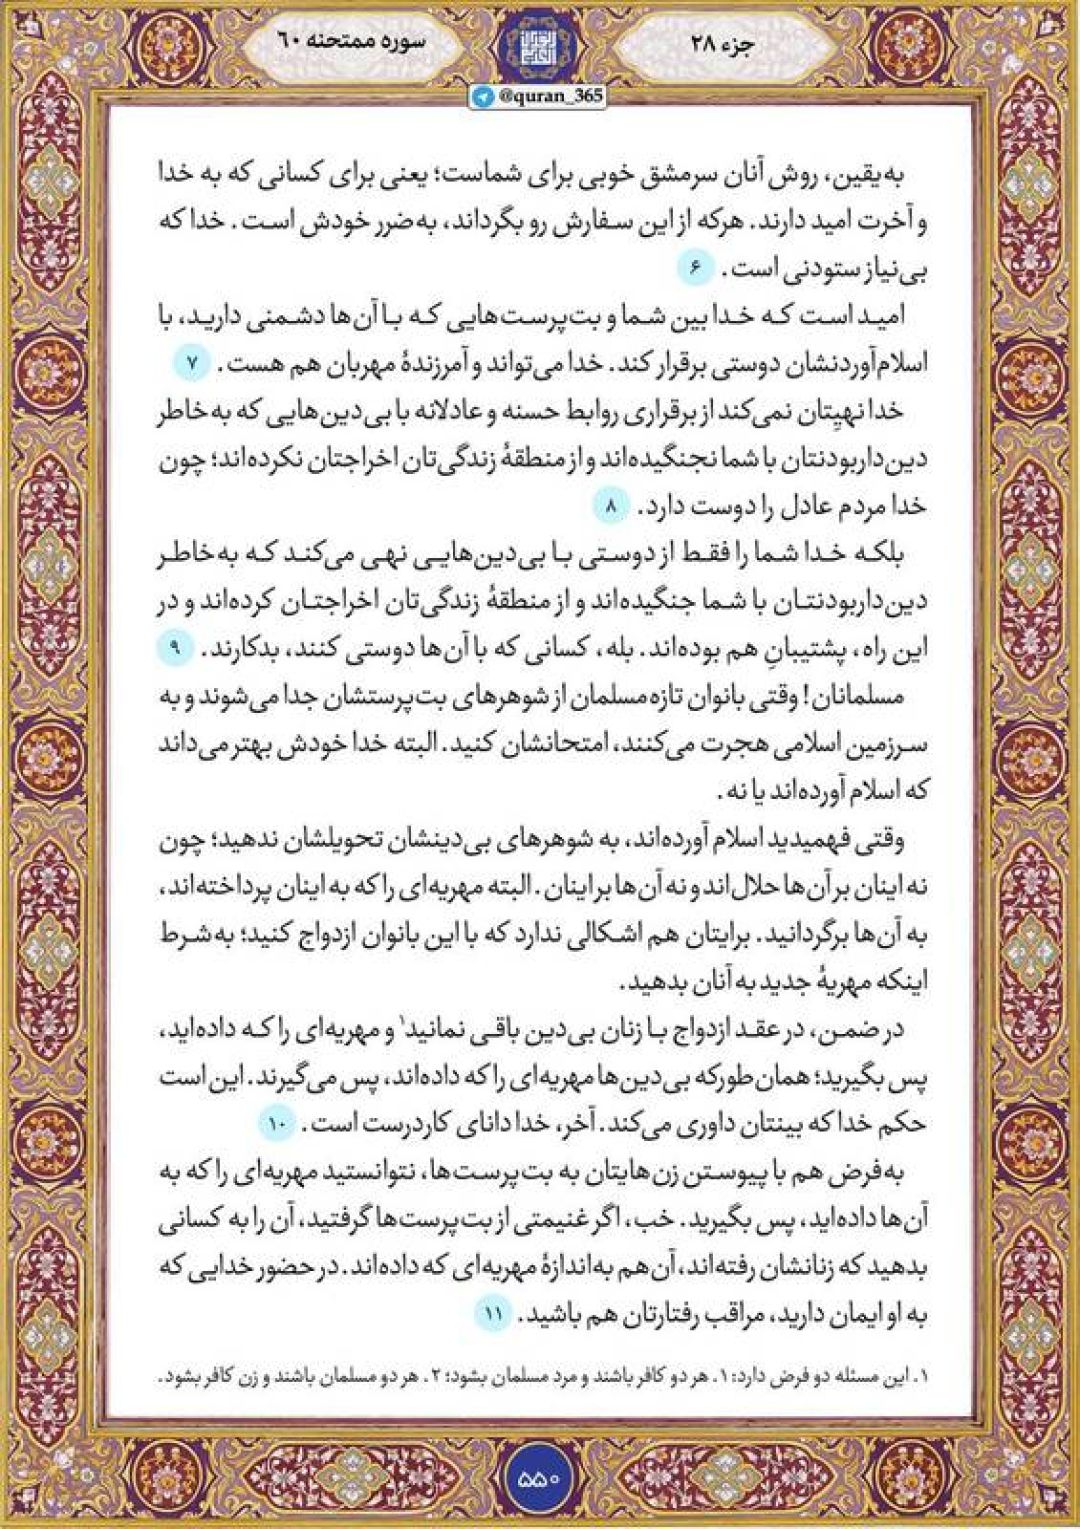 جزء ۲۸
سوره ممتحنه ۶۰
@quran_365
به‌یقین، روش آنان سرمشق خوبی برای شماست؛ یعنی برای کسانی که به خدا
و آخرت امید دارند. هرکه از این سفارش رو بگرداند، به‌ضرر خودش است. خدا که
بی‌نیاز ستودنی است. ۶
امید است که خدا بین شما و بت‌پرست‌هایی که با آن‌ها دشمنی دارید، با
اسلام‌آوردنشان دوستی برقرار کند. خدا می‌تواند و آمرزندهٔ مهربان هم هست. ۷
خدا نهیِتان نمی‌کند از برقراری روابط حسنه و عادلانه با بی‌دین‌هایی که به‌خاطر
دین‌داربودنتان با شما نجنگیده‌اند و از منطقهٔ زندگی‌تان اخراجتان نکرده‌اند؛ چون
خدا مردم عادل را دوست دارد. ۸
بلکه خدا شما را فقط از دوستی با بی‌دین‌هایی نهی می‌کند که به‌خاطر
دین‌داربودنتان با شما جنگیده‌اند و از منطقهٔ زندگی‌تان اخراجتان کرده‌اند و در
این راه، پشتیبانِ هم بوده‌اند. بله، کسانی که با آن‌ها دوستی کنند، بدکارند. ۹
مسلمانان! وقتی بانوان تازه‌مسلمان از شوهرهای بت‌پرستشان جدا می‌شوند و به
سرزمین اسلامی هجرت می‌کنند، امتحانشان کنید. البته خدا خودش بهتر می‌داند
که اسلام آورده‌اند یا نه.
وقتی فهمیدید اسلام آورده‌اند، به شوهرهای بی‌دینشان تحویلشان ندهید؛ چون
نه اینان بر آن‌ها حلال‌اند و نه آن‌ها بر اینان. البته مهریه‌ای را که به اینان پرداخته‌اند،
به آن‌ها برگردانید. برایتان هم اشکالی ندارد که با این بانوان ازدواج کنید؛ به‌شرط
اینکه مهریهٔ جدید به آنان بدهید.
در ضمن، در عقد ازدواج با زنان بی‌دین باقی نمانید۱ و مهریه‌ای را که داده‌اید،
پس بگیرید؛ همان‌طورکه بی‌دین‌ها مهریه‌ای را که داده‌اند، پس می‌گیرند. این است
حکم خدا که بینتان داوری می‌کند. آخر، خدا دانای کاردرست است. ۱۰
به‌فرض هم با پیوستن زن‌هایتان به بت‌پرست‌ها، نتوانستید مهریه‌ای را که به
آن‌ها داده‌اید، پس بگیرید. خب، اگر غنیمتی از بت‌پرست‌ها گرفتید، آن را به کسانی
بدهید که زنانشان رفته‌اند، آن‌هم به‌اندازهٔ مهریه‌ای که داده‌اند. در حضور خدایی که
به او ایمان دارید، مراقب رفتارتان هم باشید. ۱۱
۱. این مسئله دو فرض دارد: ۱. هر دو کافر باشند و مرد مسلمان بشود؛ ۲. هر دو مسلمان باشند و زن کافر بشود.
۵۵۰